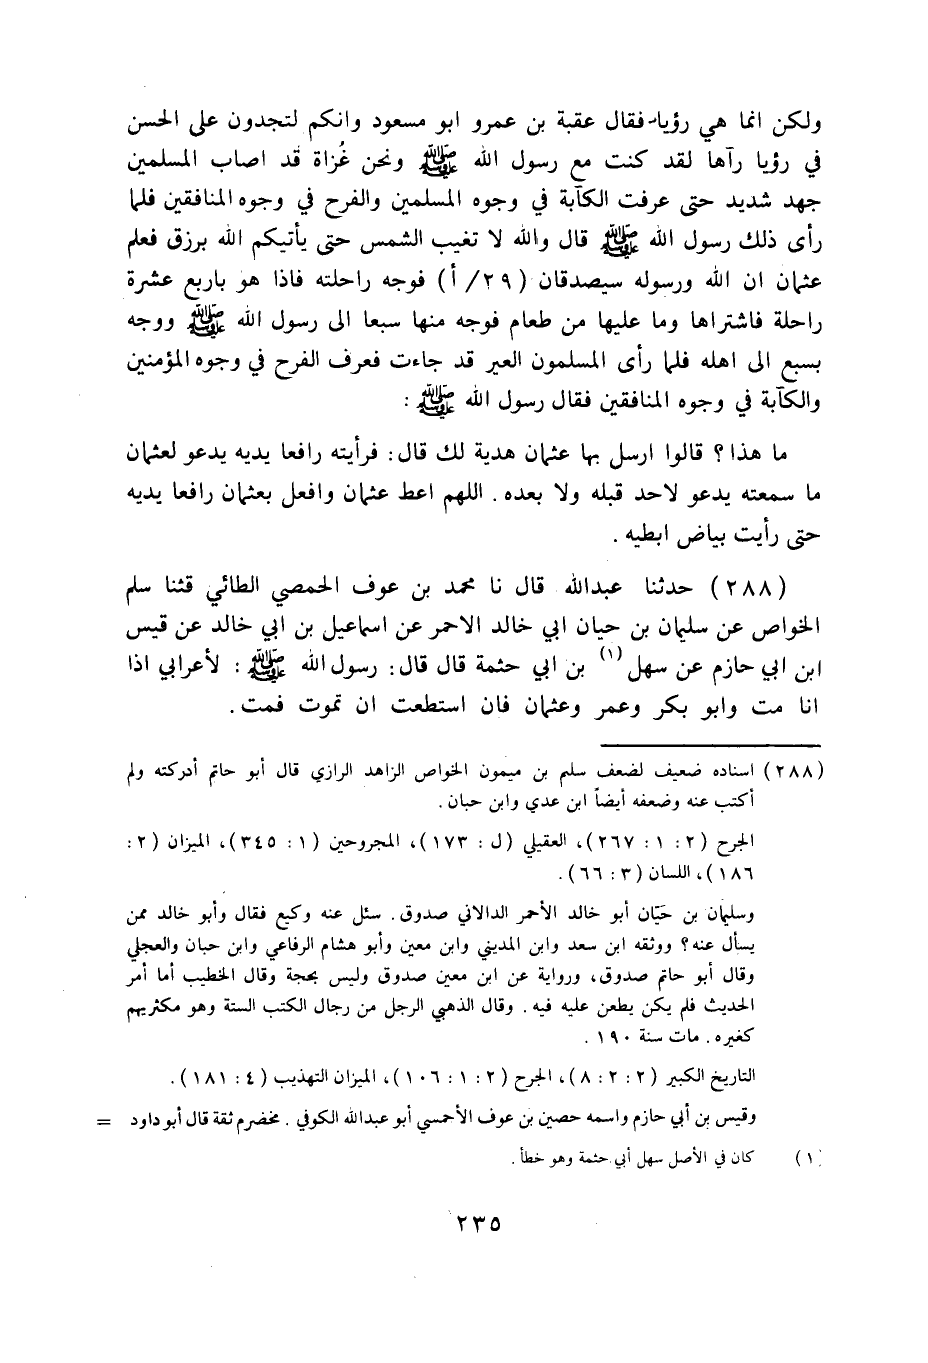 ولكن انما هي رؤيا فقال عقبة بن عمرو ابو مسعود وانكم لتجدون على الحسن
في رؤيا رآها لقد كنت مع رسول الله ﷺ ونحن غُزاة قد اصاب المسلمين
جهد شديد حتى عرفت الكآبة في وجوه المسلمين والفرح في وجوه المنافقين فلما
رأى ذلك رسول الله ﷺ قال والله لا تغيب الشمس حتى يأتيكم الله برزق فعلم
عثمان ان الله ورسوله سيصدقان (٢٩/أ) فوجه راحلته فاذا هو باربع عشرة
راحلة فاشتراها وما عليها من طعام فوجه منها سبعا الى رسول الله ﷺ ووجه
بسبع الى اهله فلما رأى المسلمون العير قد جاءت فعرف الفرح في وجوه المؤمنين
والكآبة في وجوه المنافقين فقال رسول الله ﷺ :
ما هذا؟ قالوا ارسل بها عثمان هدية لك قال: فرأيته رافعا يديه يدعو لعثمان
ما سمعته يدعو لاحد قبله ولا بعده. اللهم اعط عثمان وافعل بعثمان رافعا يديه
حتى رأيت بياض ابطيه.
(٢٨٨) حدثنا عبدالله قال نا محمد بن عوف الحمصي الطائي قثنا سلم
الخواص عن سليمان بن حيان ابي خالد الاحمر عن اسماعيل بن ابي خالد عن قيس
ابن ابي حازم عن سهل (١) بن ابي حثمة قال قال: رسول الله ﷺ : لأعرابي اذا
انا مت وابو بكر وعمر وعثمان فان استطعت ان تموت فمت.
(٢٨٨) اسناده ضعيف لضعف سلم بن ميمون الخواص الزاهد الرازي قال أبو حاتم أدركته ولم
أكتب عنه وضعفه أيضاً ابن عدي وابن حبان.
الجرح (٢: ١: ٢٦٧)، العقيلي (ل: ١٧٣)، المجروحين (١: ٣٤٥)، الميزان (٢:
١٨٦)، اللسان (٣: ٦٦).
وسليمان بن حَيّان أبو خالد الأحمر الدالاني صدوق. سئل عنه وكيع فقال وأبو خالد ممن
يسأل عنه؟ ووثقه ابن سعد وابن المديني وابن معين وأبو هشام الرفاعي وابن حبان والعجلي
وقال أبو حاتم صدوق، ورواية عن ابن معين صدوق وليس بحجة وقال الخطيب أما أمر
الحديث فلم يكن يطعن عليه فيه. وقال الذهبي الرجل من رجال الكتب الستة وهو مكثريهم
كغيره. مات سنة ١٩٠.
التاريخ الكبير (٢: ٢: ٨)، الجرح (٢: ١: ١٠٦)، الميزان التهذيب (٤: ١٨١).
وقيس بن أبي حازم واسمه حصين بن عوف الأحمسي أبو عبدالله الكوفي. مخضرم ثقة قال أبو داود =
(١) كان في الأصل سهل أبي حثمة وهو خطأ.
٢٣٥